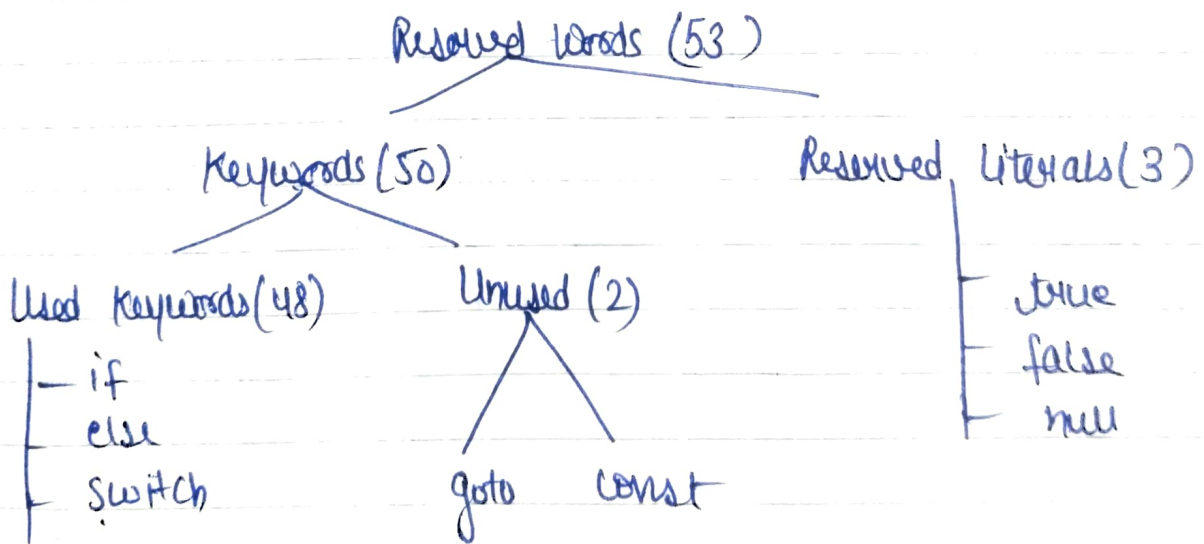 Reserved words (53)
Keywords (50)
Reserved Literals (3)
Used Keywords (48)
Unused (2)
true
false
null
if
else
switch
goto
const